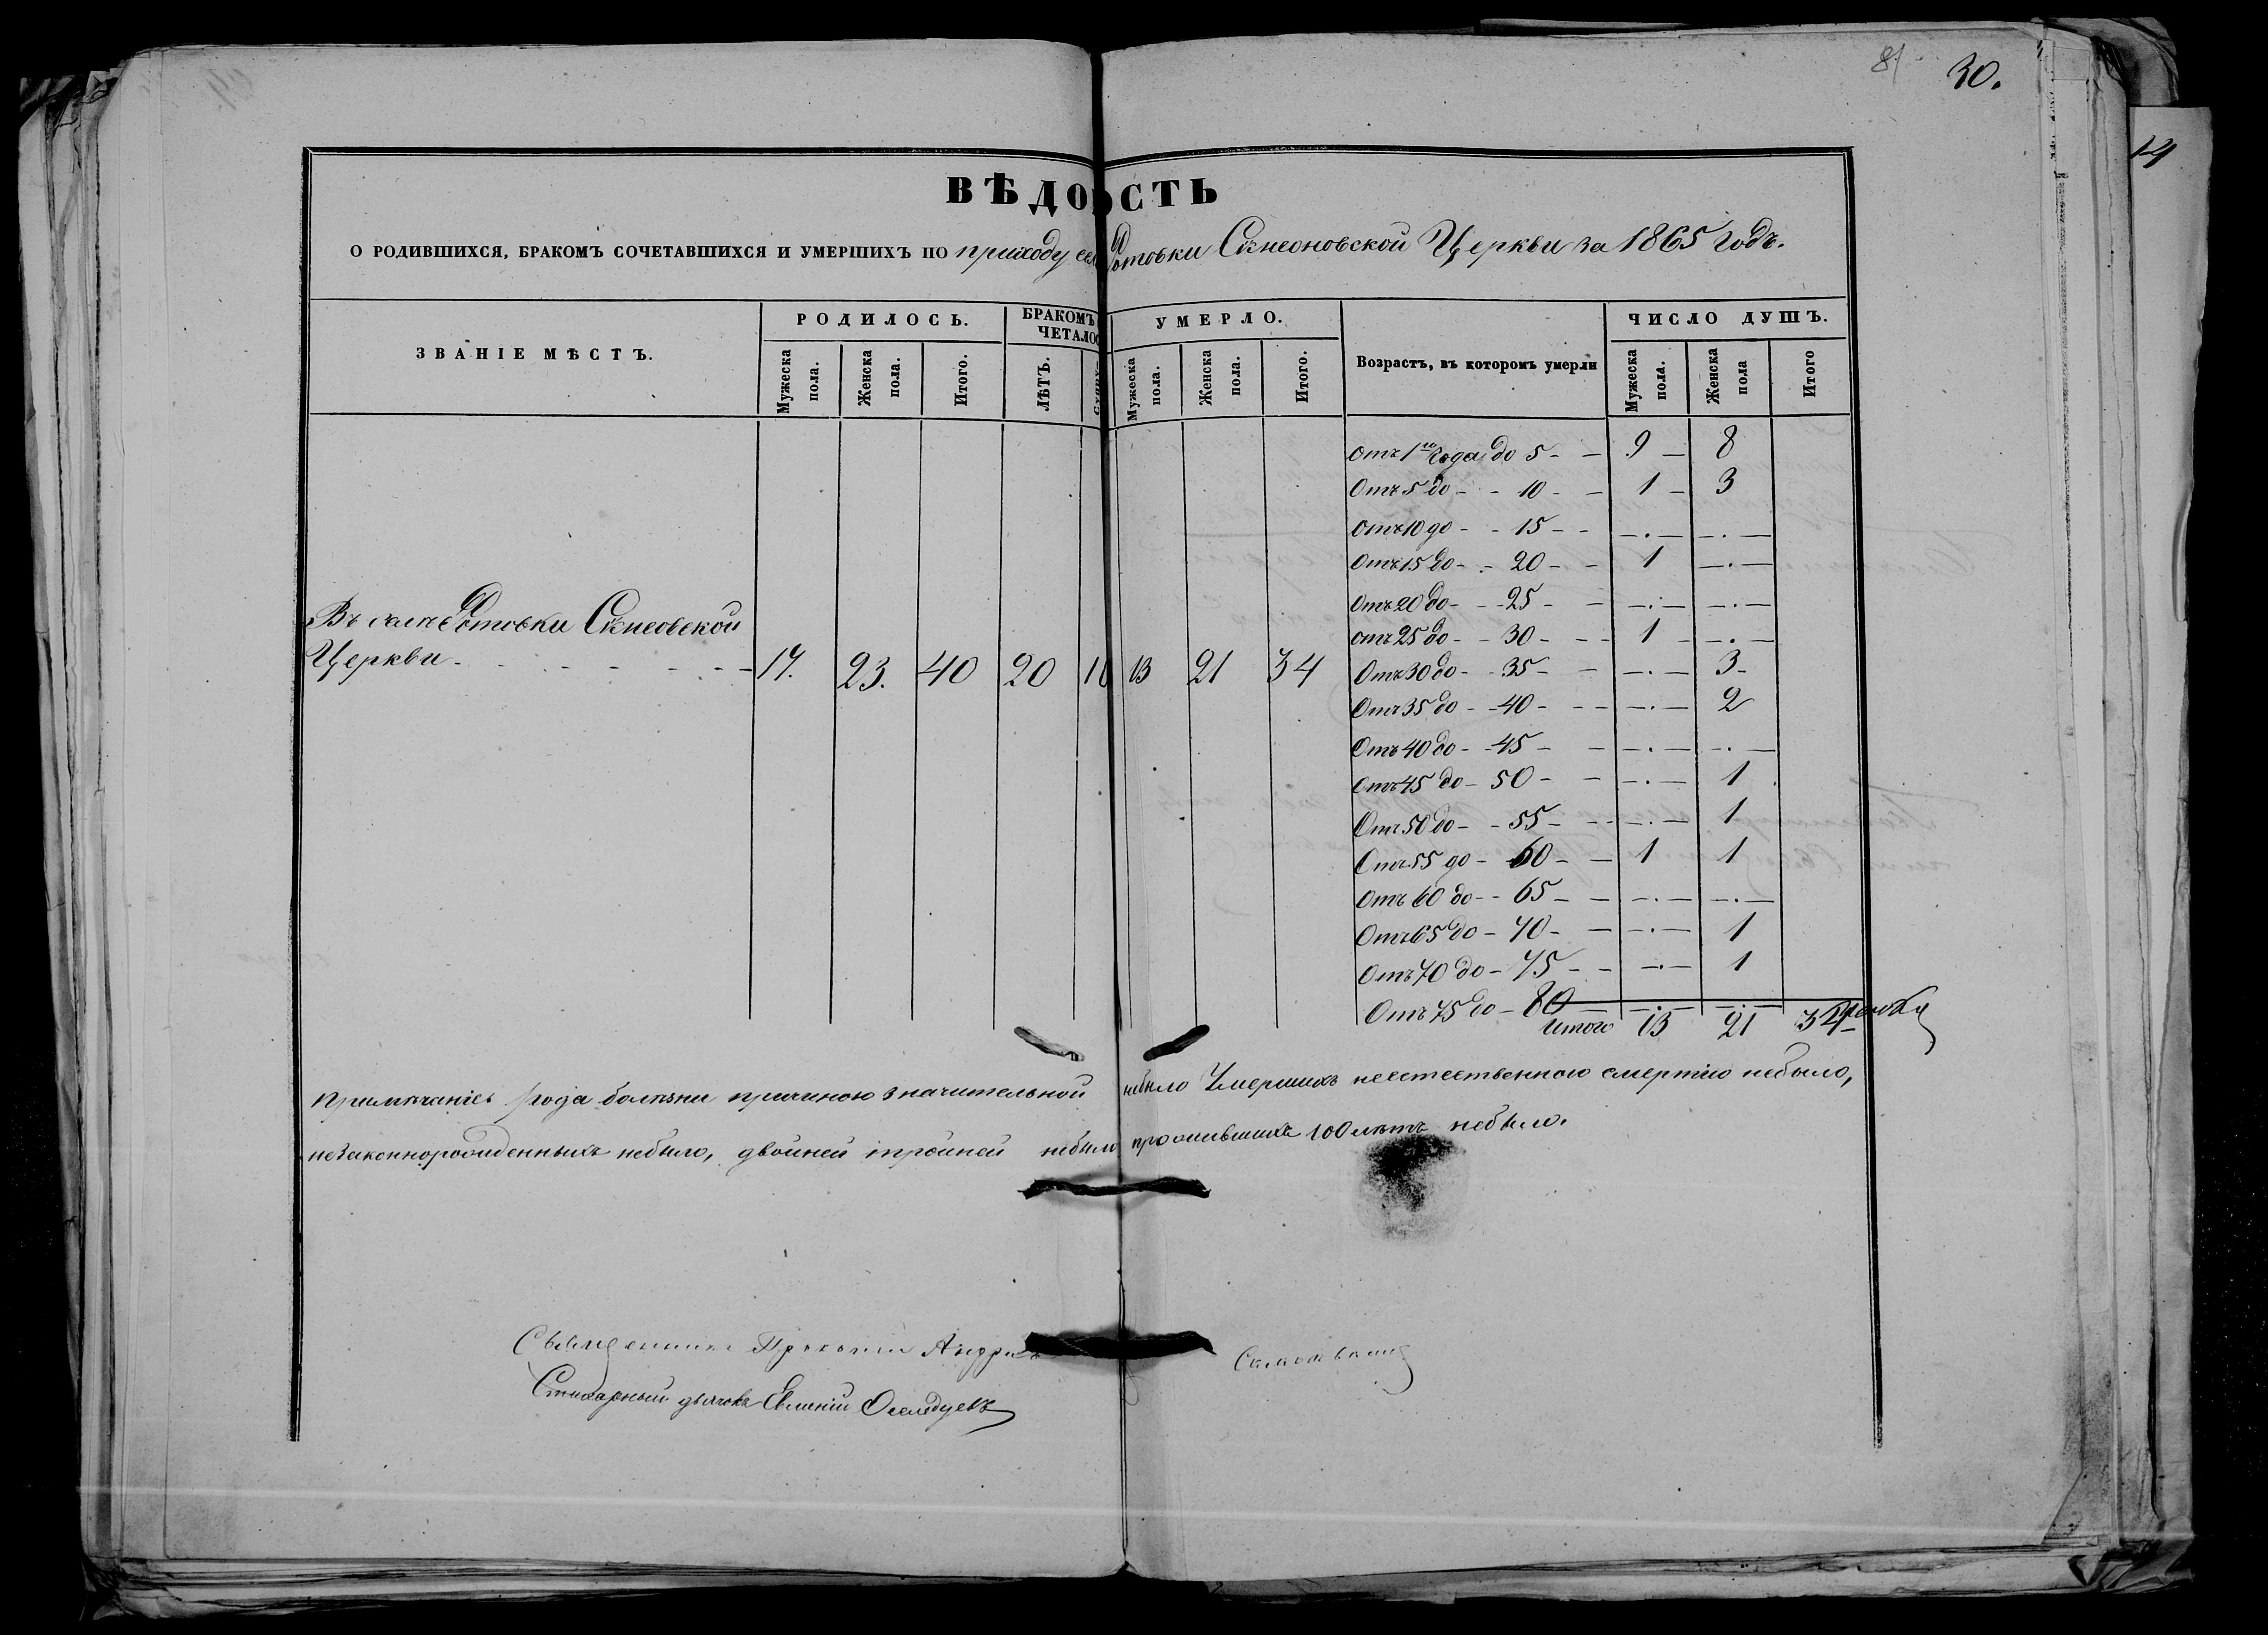 81 30.
14
ВѢДО СТЬ
О РОДИВШИХСЯ, БРАКОМЪ СОЧЕТАВШИХСЯ И УМЕРШИХЪ ПО приходу отовки Церкви за 1865 годъ.
ЗВАНІЕ МѢСТЪ. РОДИЛОСЬ. БРАКОМЪ ЧЕТАЛО УМЕРЛО. Возрастъ, въ которомъ умерли ЧИСЛО ДУШЪ.
Мужеска пола. Женска пола. Итого. ЛѢТЪ. Мужеска пола. Женска пола. Итого. Мужеска пола. Женска пола Итого
отъ 1го года до 5 - - 9 - 8
Отъ 5 до - - 10 - - 1 - 3
отъ 10 до - - 15 - - —.— —.—
Отъ 15 до - - 20 - - 1 —.—
Отъ 20 до - - 25 - - —.— —.—
отъ 25 до - - 30 - - 1 - —.—
Отъ 30 до - - 35 - - —.— 3 -
Отъ 35 до - - 40 - - —.— 2
Отъ 40 до - - 45 - - —.— —.—
Отъ 45 до - 50 - - —.— 1
Отъ 50 до - - 55 - - —.— 1
Отъ 55 до - 60 - - 1 1
Отъ 60 до - - 65 - - —.— —.—
Отъ 65 до - 70 - - —.— 1
Отъ 70 до - 75 - - —.— 1
Отъ 75 до - 80 —.— —.—
Итого 13 21 34
Въ
Церкви - - - - - 17. 23. 40 20 10 13 21 34
Примѣчаніе: рода болѣзни причиною значительной небыло Умершихъ неестественною смертію небыло,
незаконнорожденныхъ небыло, двойней тройней небыло прожившихъ 100 лѣтъ небыло.
Священникъ
Стихарный дьячокъ Евгеній